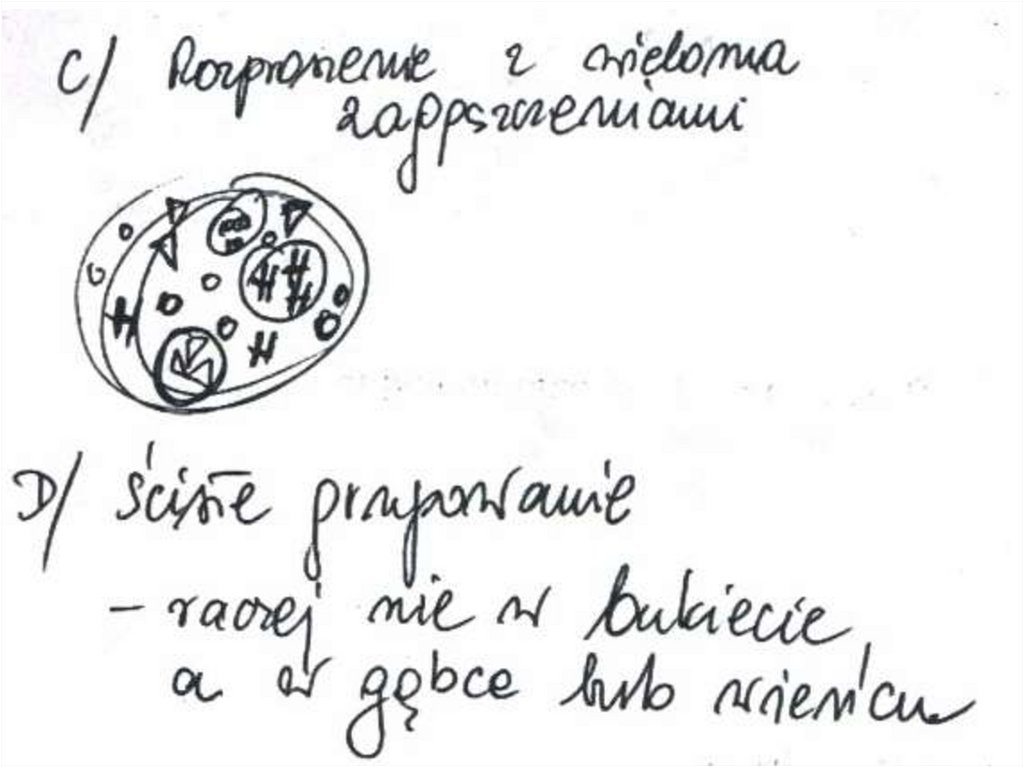 C/ Rozproszenie z wieloma
zagęszczeniami
D/ ściśłe grupowanie
- raczej nie w bukiecie,
a w gąbce lub wieńcu